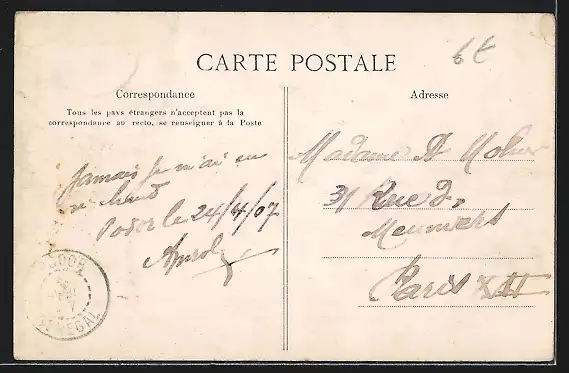 6€
CARTE POSTALE
Correspondance
Tous les pays étrangers n'acceptent pas la
correspondance au recto, se renseigner à la Poste
Jamais je n'ai eu
si chaud
Podor le 24/4/07
Adresse
Madame A
31 Rue de
Meuniers
Paris XII
PODOR
SENEGAL